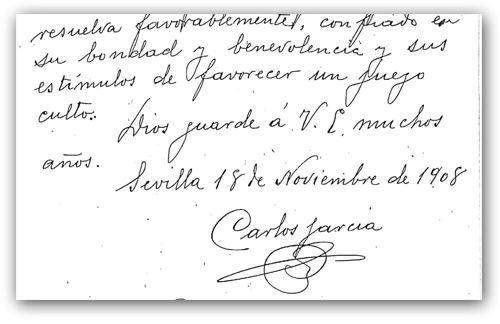 resuelva favorablemente, confiado en
su bondad y benevolencia y sus
estímulos de favorecer un juego
culto.
Dios guarde á V. E. muchos
años.
Sevilla 18 de Noviembre de 1908
Carlos García